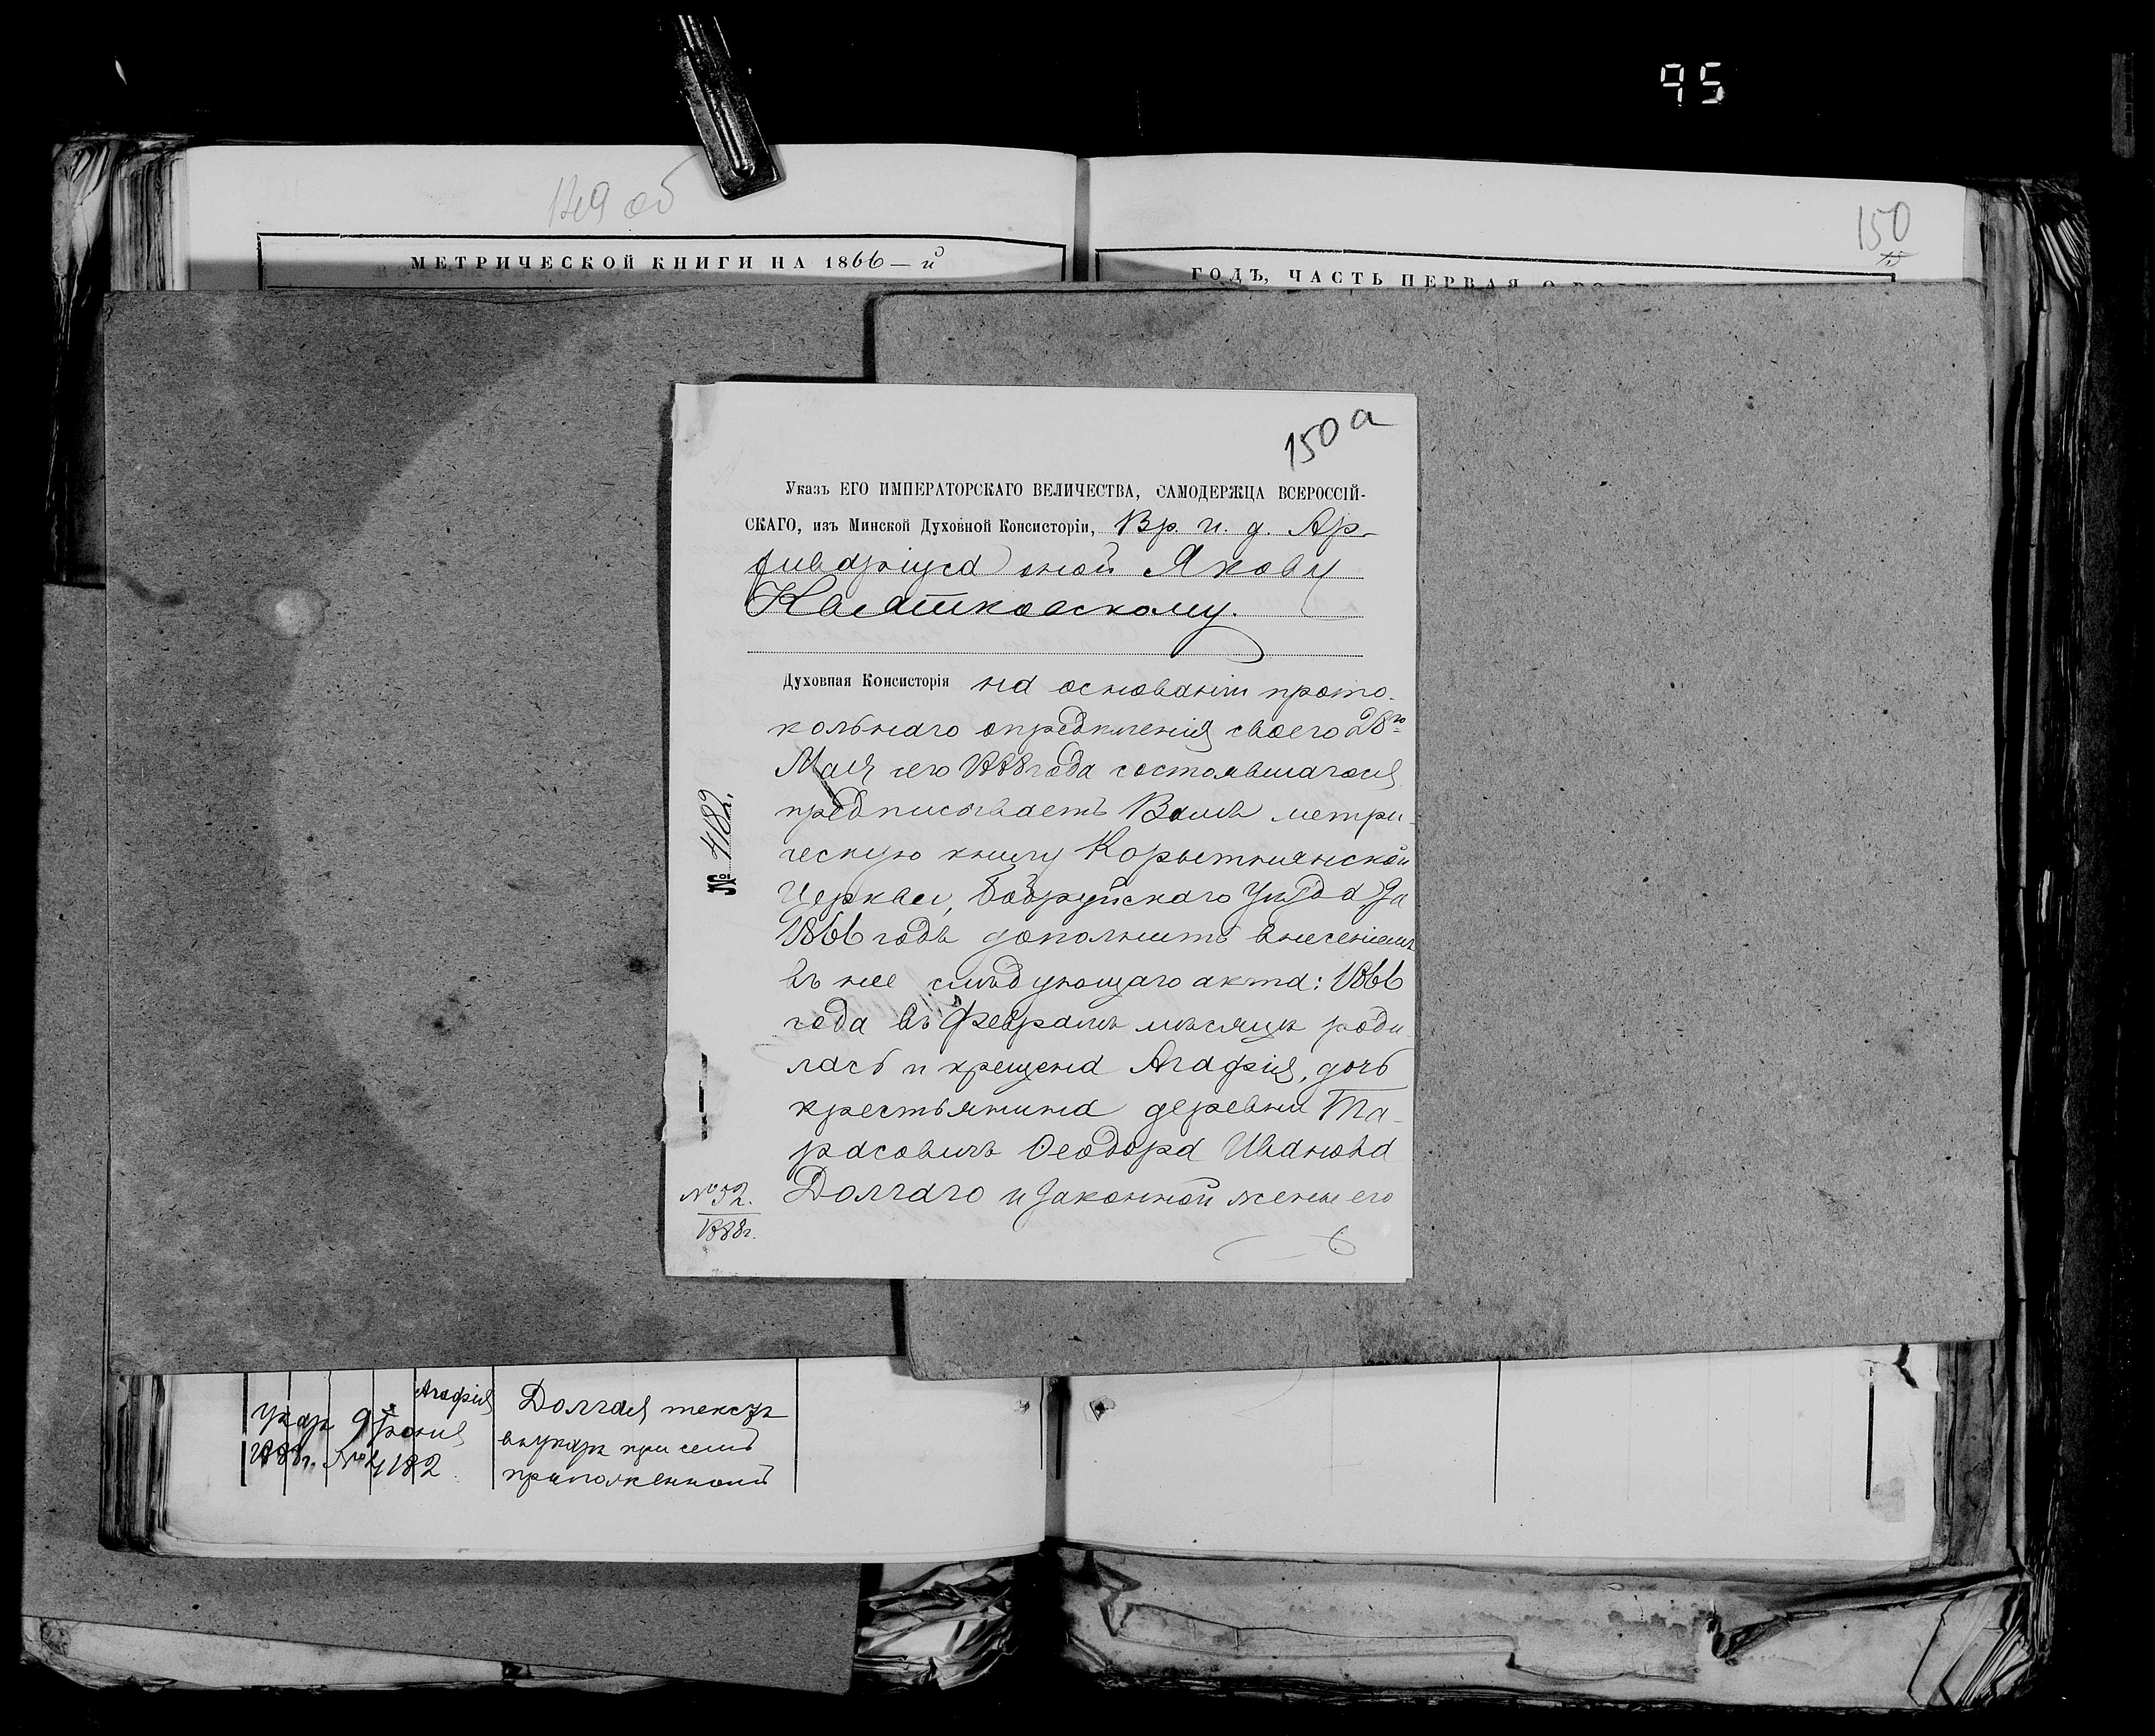 95
149 об
150
МЕТРИЧЕСКОЙ КНИГИ НА 1866-й
ГОДЪ, ЧАСТЬ ПЕРВАЯ О
150 а
Указъ ЕГО ИМПЕРАТОРСКАГО ВЕЛИЧЕСТВА, САМОДЕРЖЦА ВСЕРОССІЙ-
СКАГО, изъ Минской Духовной Консисторіи, Вр. и. д. Ар-
хиваріуса оной Якову
Квятковскому.
Духовная Консисторія на основаніи прото-
кольнаго опредѣленія своего 28го
Мая сего 1888 года состоявшагося
предписываетъ Вамъ метри-
ческую книгу Корытнянской
Церкви, Бобруйскаго Уѣзда за
1866 годъ дополнить внесеніемъ
въ нее слѣдующаго акта: 1866
года въ Февралѣ мѣсяцѣ роди-
лась и крещена Агафія, дочь
крестьянина деревни Та-
расовичъ Ѳеодора Иванова
Долгаго и законной жены его
№ 4182.
№ 52.
1888 г.
Агафія
Указ 9 Іюня
1888 г. № 4182
Долгая тексъ
въ указѣ при семъ
приложенномъ